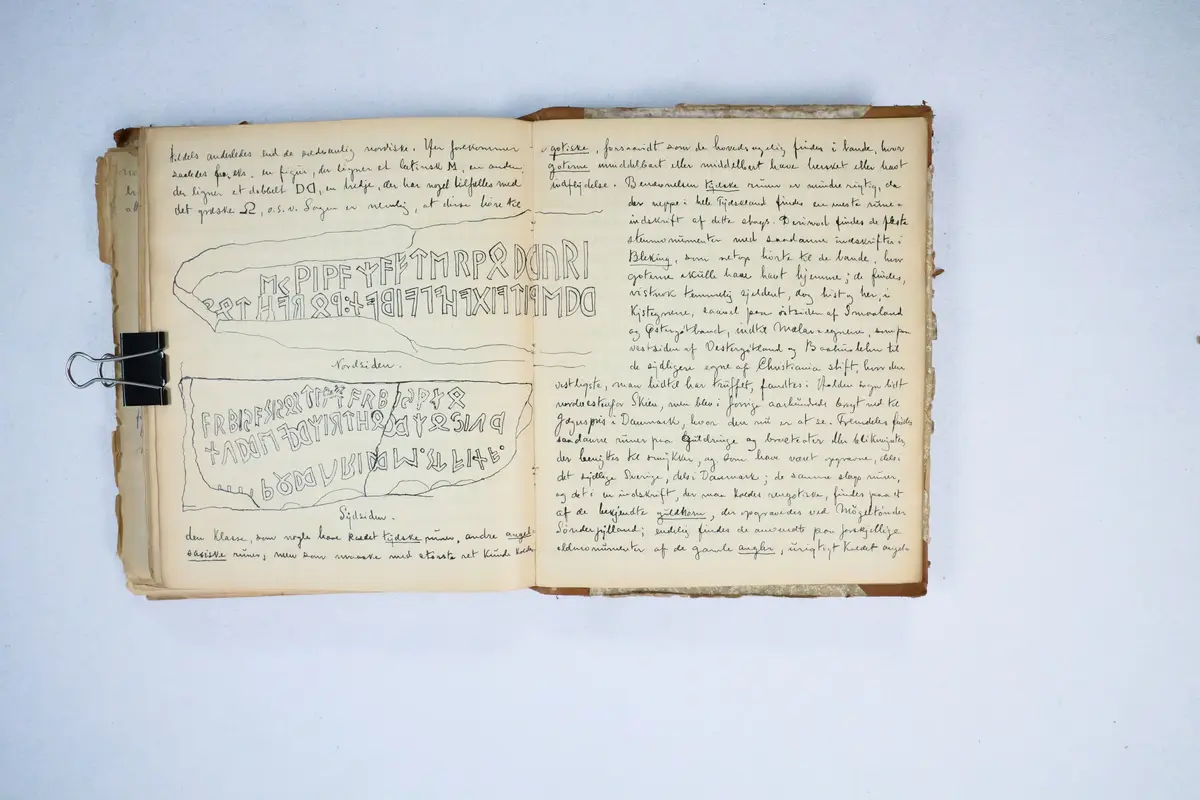 tildels anderledes end de sædvanlig nordiske. Her forekommer
saaledes en figur, der ligner et latinsk M, en anden,
der ligner et dobbelt DD, en tredje, der har noget tilfælles med
det græske Ω, o.s.v. Sagen er nemlig, at disse høre til
Nordsiden.
Sydsiden.
den klasse, som nogle have kaldet tydske runer, andre angel-
saxiske runer, men som maaske med største ret kunde kaldes
gotiske, forsaavidt som de hovedsagelig findes i lande, hvor
goterne umiddelbart eller middelbart have hersket eller havt
indflydelse. Benævnelsen tydske runer er mindre rigtig, da
der neppe i hele Tydskland findes en eneste rune-
indskrift af dette slags. Derimod findes de fleste
stenmonumenter med saadanne indskrifter i
Bleking, som netop hørte til de lande, hvor
goterne skulle have havt hjemme; de findes,
vistnok temmelig sjeldent, dog hist og her, i
Kystegnene, saavel paa østsiden af Smaaland
og Østergøtland, indtil Mælar-egnene, som paa
vestsiden af Vestergøtland og Baahuslehn til
de sydligere egne af Christiania stift, hvor den
vestligste, man hidtil har truffet, fandtes i Valden sogn lidt
nordvestenfor Skien, men blev i forrige aarhundrede bragt ned til
Jægerspris i Danmark, hvor den nu er at se. Fremdeles findes
saadanne runer paa guldringe og bracteater eller blikmynter,
der benyttes til smykker, og som have været opgravne, dels i
det sydlige Sverige, dels i Danmark; de samme slags runer,
og det i en indskrift, der maa kaldes rengotiske, findes paa et
af de bekjendte guldhorn, der opgravedes ved Møgeltønder
Sønderjylland; endelig findes de anvendte paa forskjellige
oldmonumenter af de gamle angler, urigtigt kaldet angel-